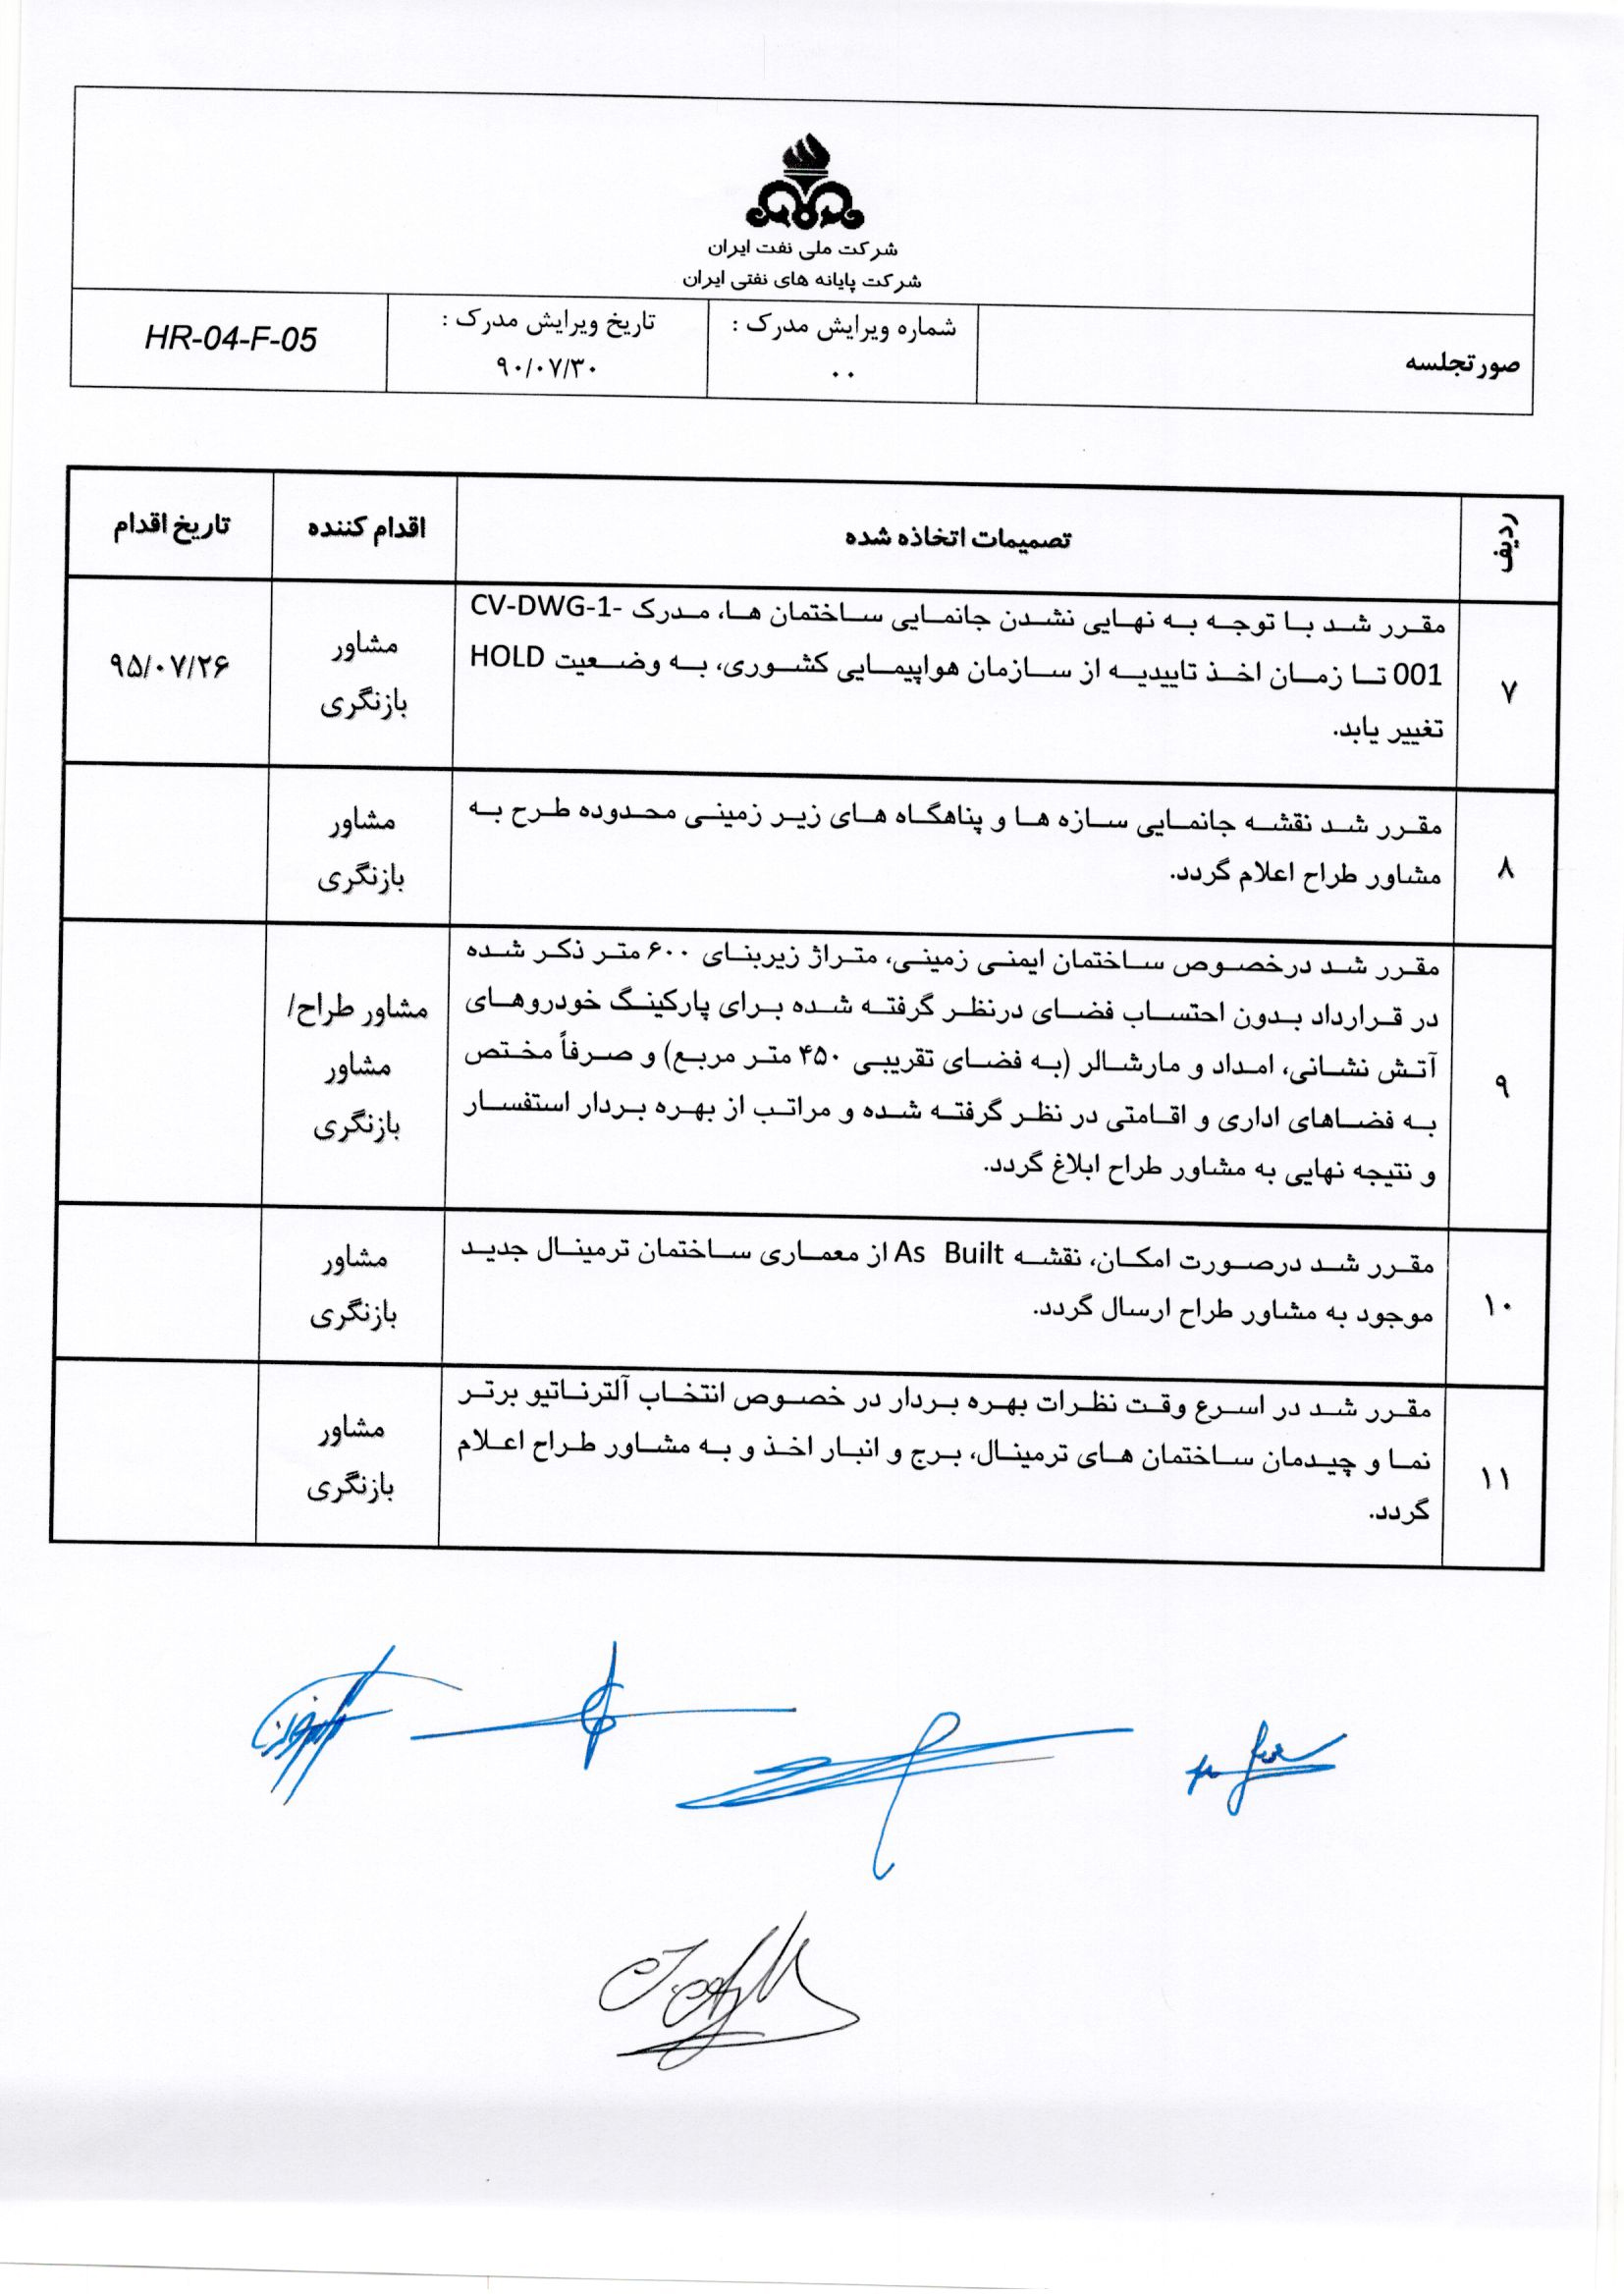 شرکت ملی نفت ایران
شرکت پایانه های نفتی ایران
صورتجلسه
شماره ویرایش مدرک :
۰۰
تاریخ ویرایش مدرک :
۹۰/۰۷/۳۰
HR-04-F-05
ردیف
تصمیمات اتخاذه شده
اقدام کننده
تاریخ اقدام
۷
مقرر شد با توجه به نهایی نشدن جانمایی ساختمان ها، مدرک CV-DWG-1-
001 تا زمان اخذ تاییدیه از سازمان هواپیمایی کشوری، به وضعیت HOLD
تغییر یابد.
مشاور
بازنگری
۹۵/۰۷/۲۶
۸
مقرر شد نقشه جانمایی سازه ها و پناهگاه های زیر زمینی محدوده طرح به
مشاور طراح اعلام گردد.
مشاور
بازنگری
۹
مقرر شد درخصوص ساختمان ایمنی زمینی، متراژ زیربنای ۶۰۰ متر ذکر شده
در قرارداد بدون احتساب فضای درنظر گرفته شده برای پارکینگ خودروهای
آتش نشانی، امداد و مارشالر (به فضای تقریبی ۴۵۰ متر مربع) و صرفاً مختص
به فضاهای اداری و اقامتی در نظر گرفته شده و مراتب از بهره بردار استفسار
و نتیجه نهایی به مشاور طراح ابلاغ گردد.
مشاور طراح/
مشاور
بازنگری
۱۰
مقرر شد درصورت امکان، نقشه As Built از معماری ساختمان ترمینال جدید
موجود به مشاور طراح ارسال گردد.
مشاور
بازنگری
۱۱
مقرر شد در اسرع وقت نظرات بهره بردار در خصوص انتخاب آلترناتیو برتر
نما و چیدمان ساختمان های ترمینال، برج و انبار اخذ و به مشاور طراح اعلام
گردد.
مشاور
بازنگری